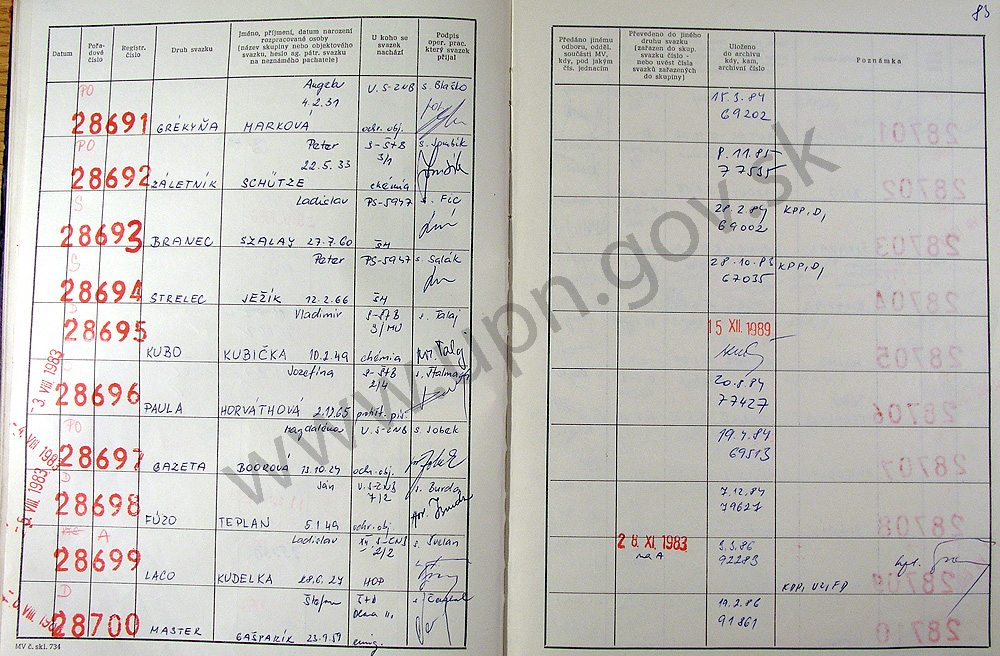 83
Datum
Pořadové číslo
Registr. číslo
Druh svazku
Jméno, příjmení, datum narození rozpracované osoby
(název skupiny nebo objektového svazku, heslo ag. pátr. svazku na neznámého pachatele)
U koho se svazek nachází
Podpis oper. prac. který svazek přijal
Předáno jinému odboru, odděl. součásti MV, kdy, pod jakým čís. jednacím
Převedeno do jiného druhu svazku (zařazen do skup. svazku číslo - nebo uvést čísla svazků zařazených do skupiny)
Uloženo do archivu kdy, kam, archivní číslo
Poznámka
PO Angela 4.2.31 s. Blaško 15.3.84
28691 GRÉKYŇA MARKOVÁ ochr. obj. 69202
PO Peter S-ŠtB 8.11.85
28692 ZÁLETNÍK 22.5.33 SCHÜTZE chémia 77535
S Ladislav PS-5947 s. FIC 28.2.84 KPP, D,
28693 BRANEC SZALAY 27.7.60 ŠH 69002
S Peter PS-5947 s. Salák 28.10.83 KPP, D,
28694 STRELEC JEŽÍK 12.2.66 ŠH 67035
D Vladimír S-ŠTB s. Talaj 15 XII. 1989
28695 KUBO KUBIČKA 10.2.49 chémia
- 3. VIII. 1983 Jozefína S-ŠtB 2/4 20.8.84
28696 PAULA HORVÁTHOVÁ 77427
- 4. VIII 1983 PO Magdaléna s. Sobek 19.4.84
28697 GAZETA BODROVÁ 13.10.24 ochr. obj. 69513
- 5. VIII. 1983 D Ján 7/2 s. Burda 7.12.84
28698 FÚZO TEPLAN 5.1.49 ochr. obj. 79627
A Ladislav 2/2 28. XI. 1983 na A 3.3.86
28699 LACO KUDELKA 28.6.24 HOP 92283
D Štefan 19.2.86
28700 MASTER GAŠPARÍK 23.9.59 emig. 91861
MV č. skl. 734
www.upn.gov.sk